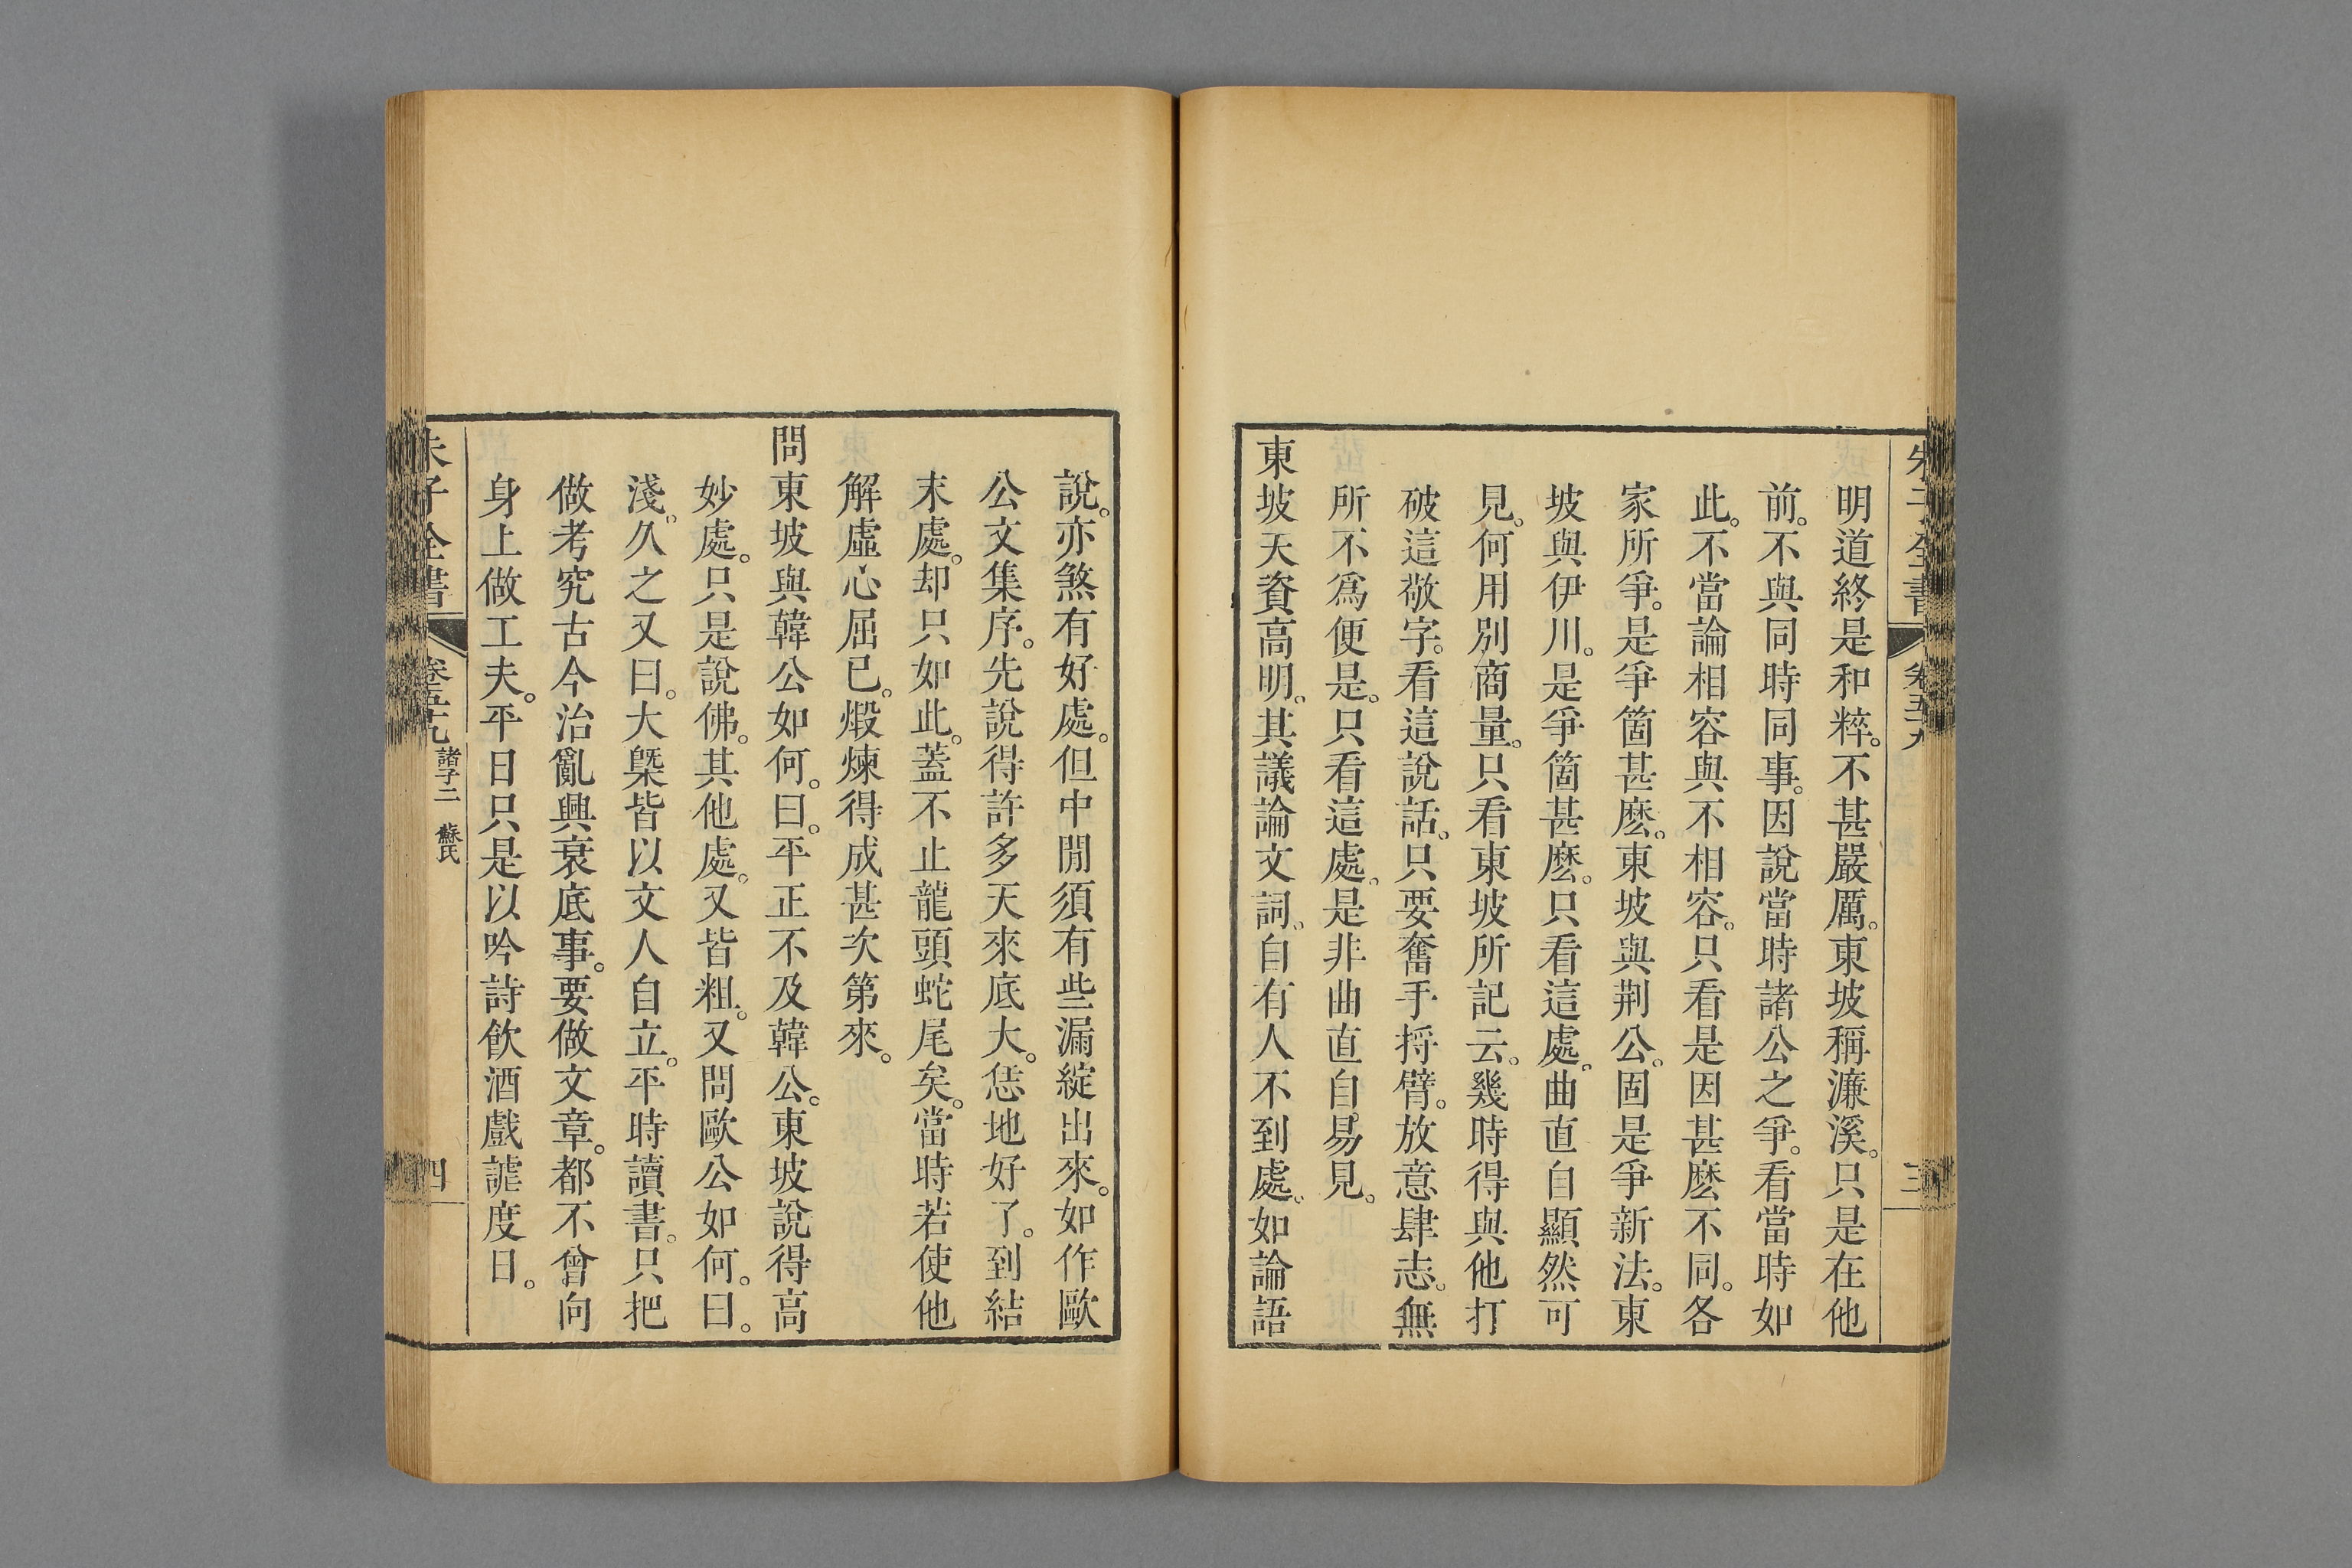 朱子全書 卷五十九 三
明道終是和粹。不甚嚴厲。東坡稱濂溪。只是在他
前。不與同時同事。因說當時諸公之爭。看當時如
此。不當論相容與不相容。只看是因甚麽不同。各
家所爭。是爭箇甚麽。東坡與荆公。固是爭新法。東
坡與伊川。是爭箇甚麽。只看這處。曲直自顯然可
見。何用別商量。只看東坡所記云。幾時得與他打
破這敬字。看這說話。只要奮手捋臂。放意肆志。無
所不爲便是。只看這處。是非曲直自易見。
東坡天資高明。其議論文詞。自有人不到處。如論語
說。亦煞有好處。但中閒須有些漏綻出來。如作歐
公文集序。先說得許多天來底大。恁地好了。到結
末處。却只如此。蓋不止龍頭蛇尾矣。當時若使他
解虛心屈已。煅煉得成甚次第來。
問東坡與韓公如何。曰。平正不及韓公。東坡說得高
妙處。只是說佛。其他處。又皆粗。又問歐公如何。曰。
淺。久之又曰。大槩皆以文人自立。平時讀書。只把
做考究古今治亂興衰底事。要做文章。都不曾向
身上做工夫。平日只是以吟詩飲酒戲謔度日。
朱子全書 卷五十九 諸子二 蘇氏 四